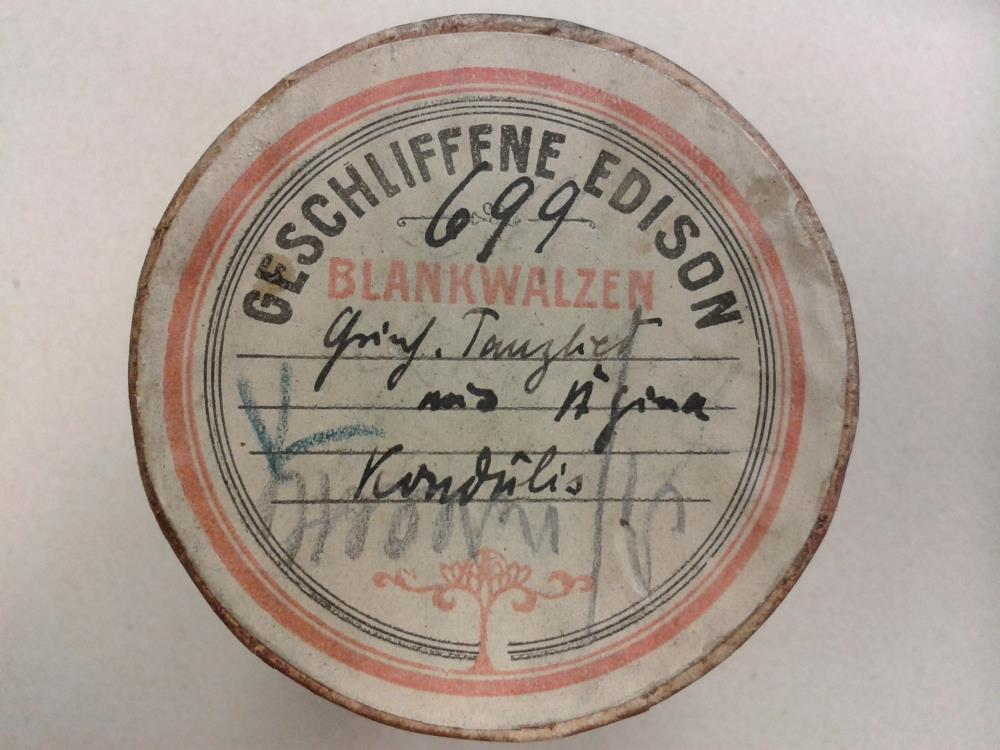 GESCHLIFFENE EDISON
699
BLANKWALZEN
Griech. Tanzlied
Ägina
Kondúlis